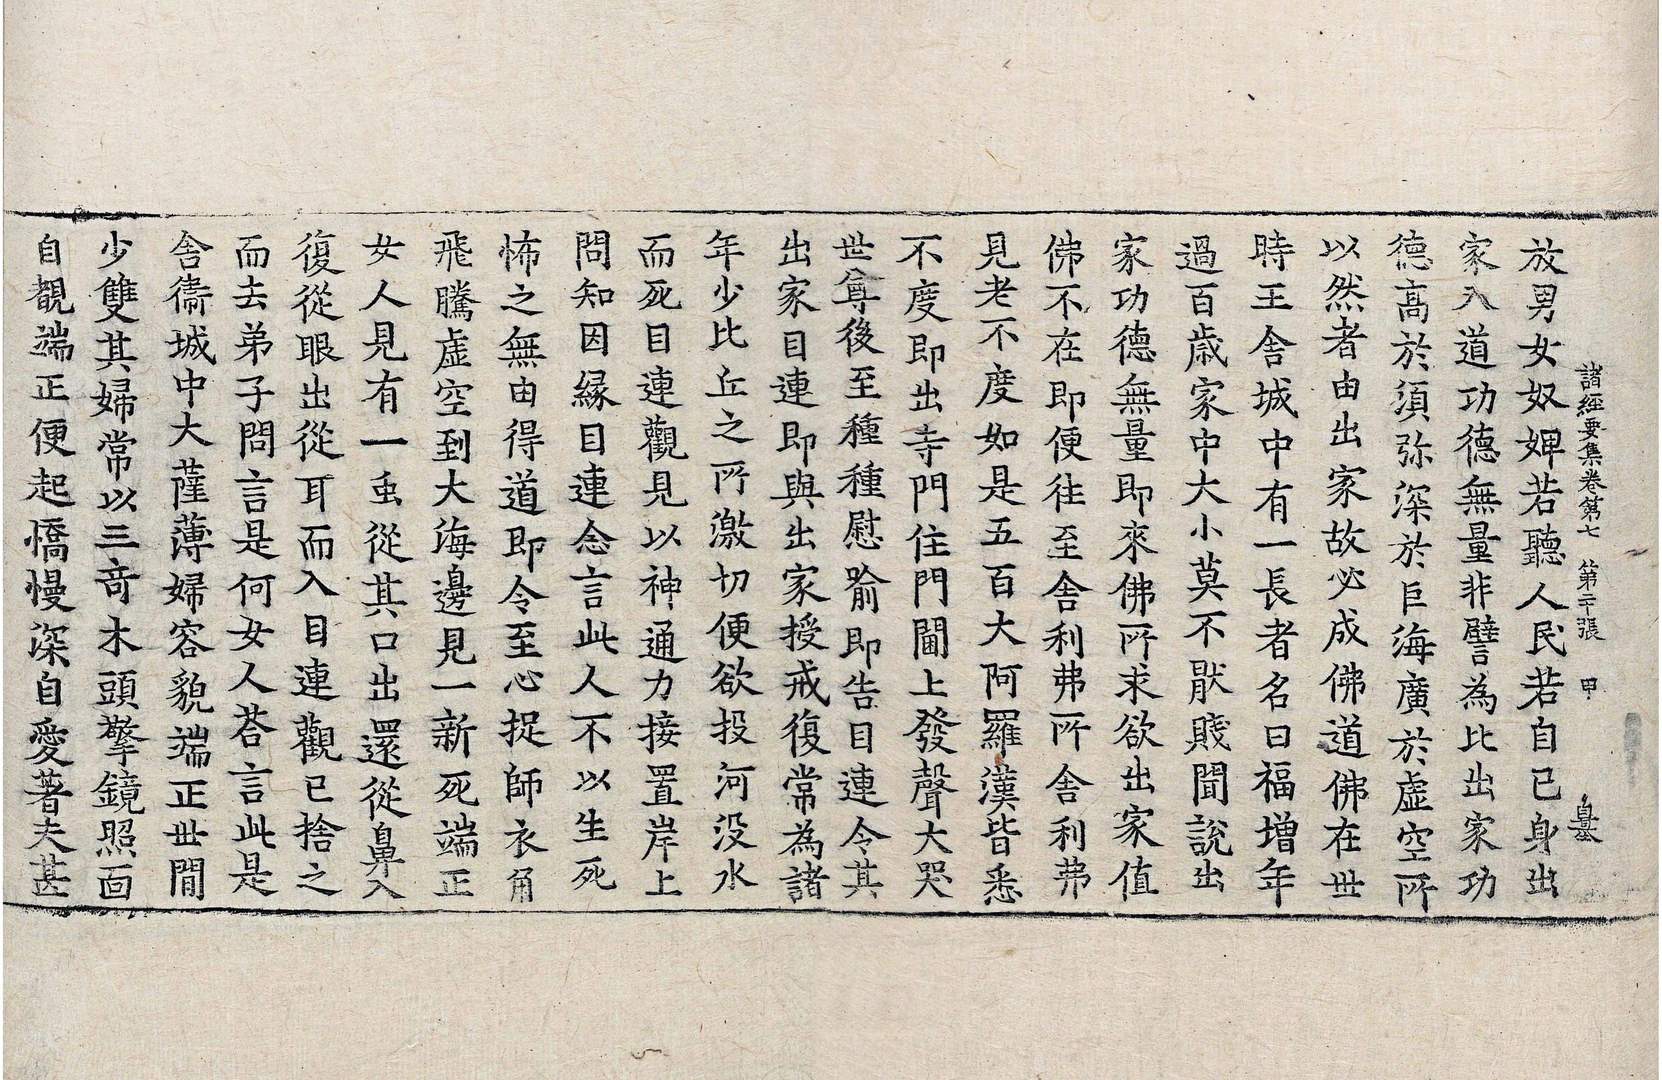 諸經要集卷第七 第二十張 甲 墓
放男女奴婢若聽人民若自己身出
家入道功德無量非譬為比出家功
德高於須弥深於巨海廣於虛空所
以然者由出家故必成佛道佛在世
時王舍城中有一長者名曰福增年
過百歲家中大小莫不猒賤聞說出
家功德無量即來佛所求欲出家值
佛不在即便往至舍利弗所舍利弗
見老不度如是五百大阿羅漢皆悉
不度即出寺門住門閫上發聲大哭
世尊後至種種慰喻即告目連令其
出家目連即與出家授戒復常為諸
年少比丘之所激切便欲投河没水
而死目連觀見以神通力接置岸上
問知因緣目連念言此人不以生死
怖之無由得道即令至心捉師衣角
飛騰虛空到大海邊見一新死端正
女人見有一虫從其口出還從鼻入
復從眼出從耳而入目連觀已捨之
而去弟子問言是何女人荅言此是
舍衞城中大薩薄婦容貌端正世間
少雙其婦常以三奇木頭擎鏡照面
自覩端正便起憍慢深自愛著夫甚